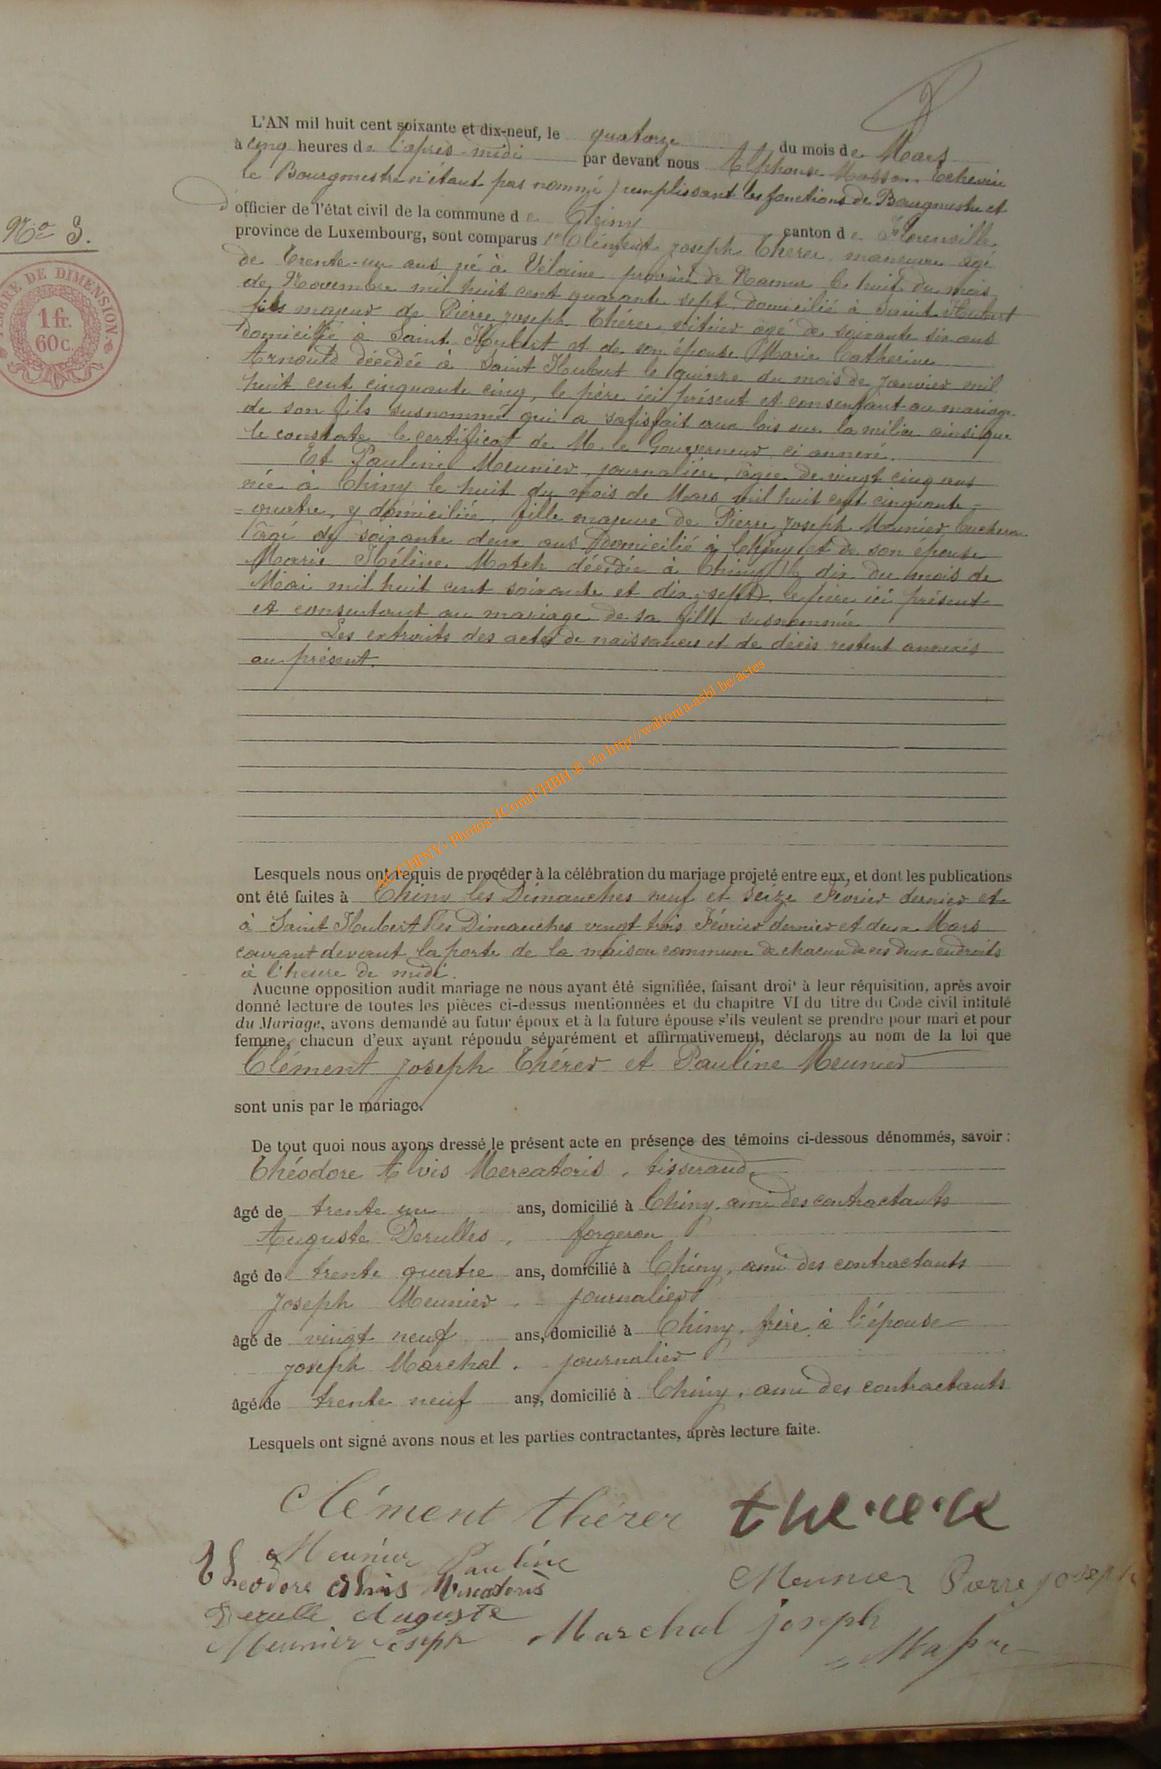 L'AN mil huit cent soixante et dix-neuf, le quatorze du mois de Mars
à cinq heures de l'après-midi par devant nous Alphonse Masson Echevin
le Bourgmestre n'étant pas nommé) remplissant les fonctions de Bourgmestre et
d'officier de l'état civil de la commune de Chiny canton de Florenville
province de Luxembourg, sont comparus 1° Clément Joseph Thérer, manœuvre, âgé
de Trente-un ans né à Velaine, province de Namur, le huit du mois
de Novembre mil huit cent quarante sept, domicilié à Saint-Hubert
fils majeur de Pierre Joseph Thérer, âgé de soixante six ans
domicilié à Saint-Hubert et de son épouse Marie Catherine
Arnould décédée à Saint-Hubert le quinze du mois de Janvier mil
huit cent cinquante cinq, le père ici présent et consentant au mariage
de son fils susnommé qui a satisfait aux lois sur la milice ainsi que
le constate le certificat de M. le Gouverneur, ci annexé.
Et Pauline Meunier, journalière, âgée de vingt cinq ans
née à Chiny le huit du mois de Mars mil huit cent cinquante-
quatre, y domiciliée, fille majeure de Pierre Joseph Meunier
âgé de soixante deux ans domicilié à Chiny et de son épouse
Marie Hélène Match décédée à Chiny le dix du mois de
Mai mil huit cent soixante et dix-sept, le père ici présent
et consentant au mariage de sa fille susnommée
Les extraits des actes de naissances et de décès restent annexés
au présent.
N° 3.
TIMBRE DE DIMENSION
1 fr.
60 c.
de CHINY - Photos JCorail/HBH ® via http://wallonia-asbl.be/actes
Lesquels nous ont requis de procéder à la célébration du mariage projeté entre eux, et dont les publications
ont été faites à Chiny les Dimanches neuf et seize Février dernier et
à Saint Hubert les Dimanches vingt trois Février dernier et deux Mars
courant devant la porte de la maison commune de chacun de ces deux endroits
à l'heure de midi.
Aucune opposition audit mariage ne nous ayant été signifiée, faisant droit à leur réquisition, après avoir
donné lecture de toutes les pièces ci-dessus mentionnées et du chapitre VI du titre du Code civil intitulé
du Mariage, avons demandé au futur époux et à la future épouse s'ils veulent se prendre pour mari et pour
femme, chacun d'eux ayant répondu séparément et affirmativement, déclarons au nom de la loi que
Clément Joseph Thérer et Pauline Meunier
sont unis par le mariage.
De tout quoi nous avons dressé le présent acte en présence des témoins ci-dessous dénommés, savoir :
Théodore Alvis Mercatoris, tisserand,
âgé de trente un ans, domicilié à Chiny, ami des contractants
Auguste Derulles, forgeron
âgé de trente quatre ans, domicilié à Chiny, ami des contractants
Joseph Meunier, journalier
âgé de vingt neuf ans, domicilié à Chiny, frère à l'épouse
Joseph Marchal, journalier
âgé de trente neuf ans, domicilié à Chiny, ami des contractants
Lesquels ont signé avons nous et les parties contractantes, après lecture faite.
Clément thérer
Meunier Pauline
Théodore Mercatoris
Meunier Pierre Joseph
Derulle Auguste
Meunier Joseph
Marchal Joseph